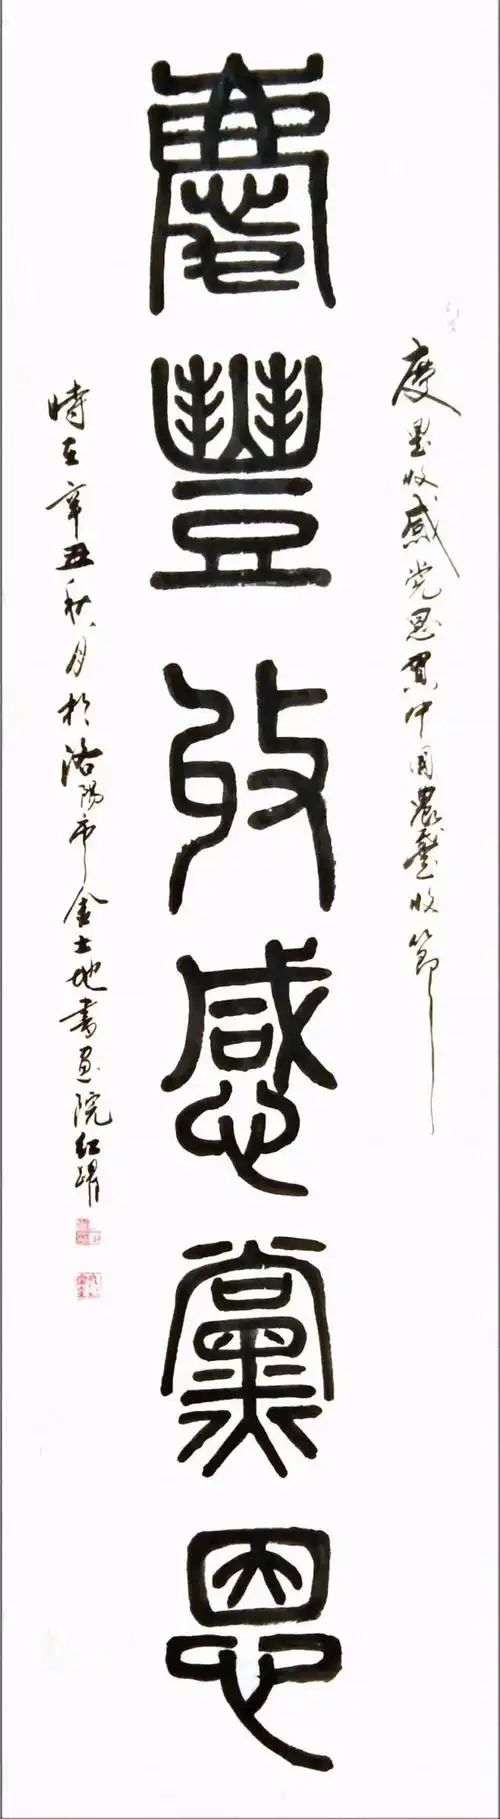 慶豐收感党恩賀中国農豐收節
慶豐收感黨恩
時在辛丑秋月於洛陽市金土地書画院紅躍